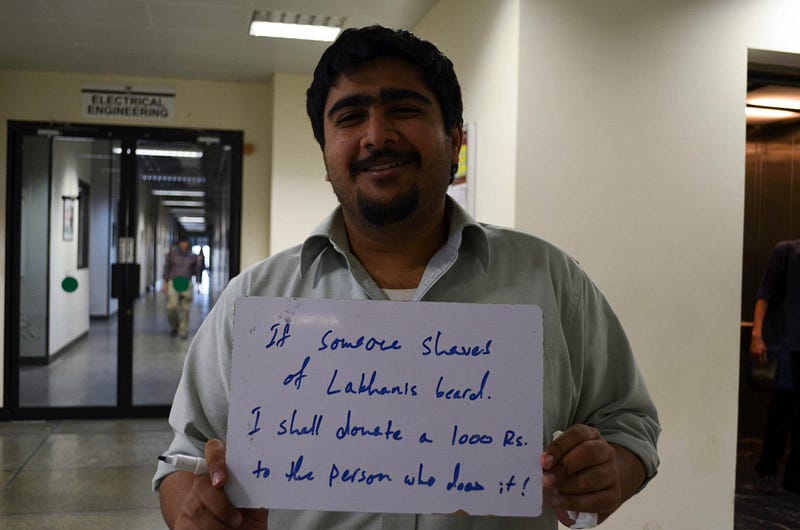 ELECTRICAL
ENGINEERING
If someone shaves
of Lakhanis beard.
I shall donate a 1000 Rs.
to the person who does it!